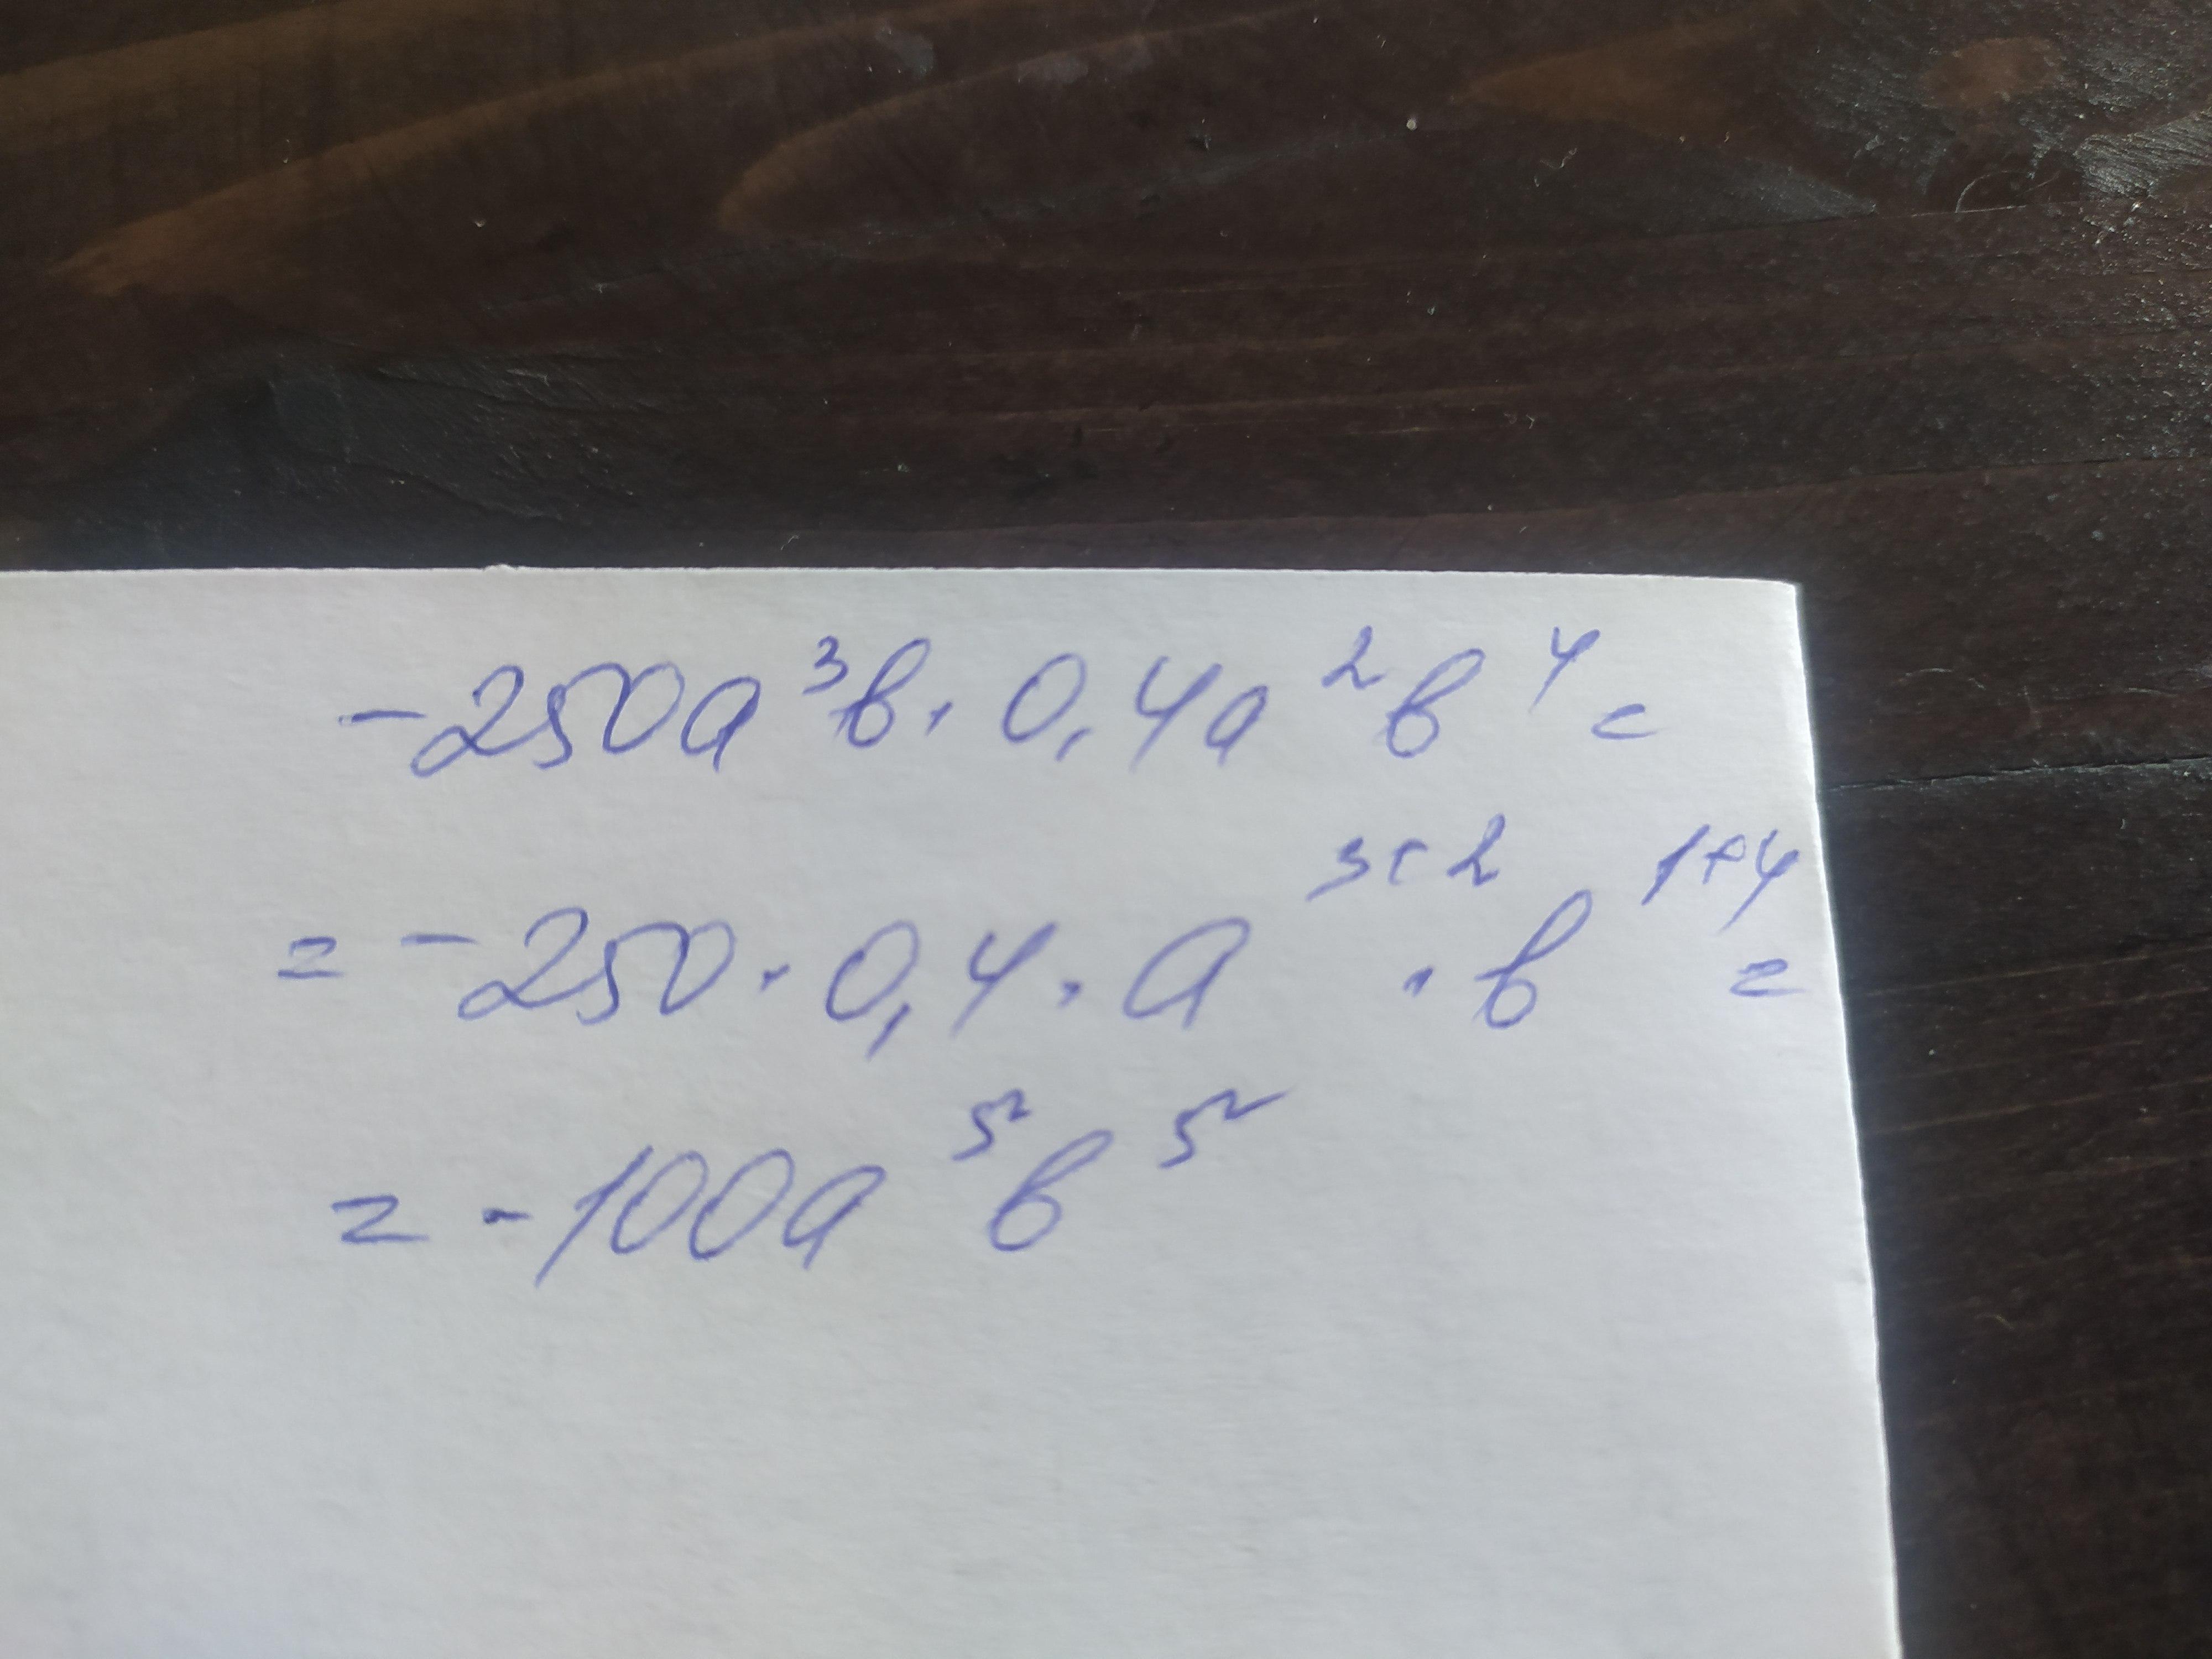 -250a³b · 0,4a²b⁴ =
= -250 · 0,4 · a³⁺² · b¹⁺⁴ =
= -100a⁵b⁵